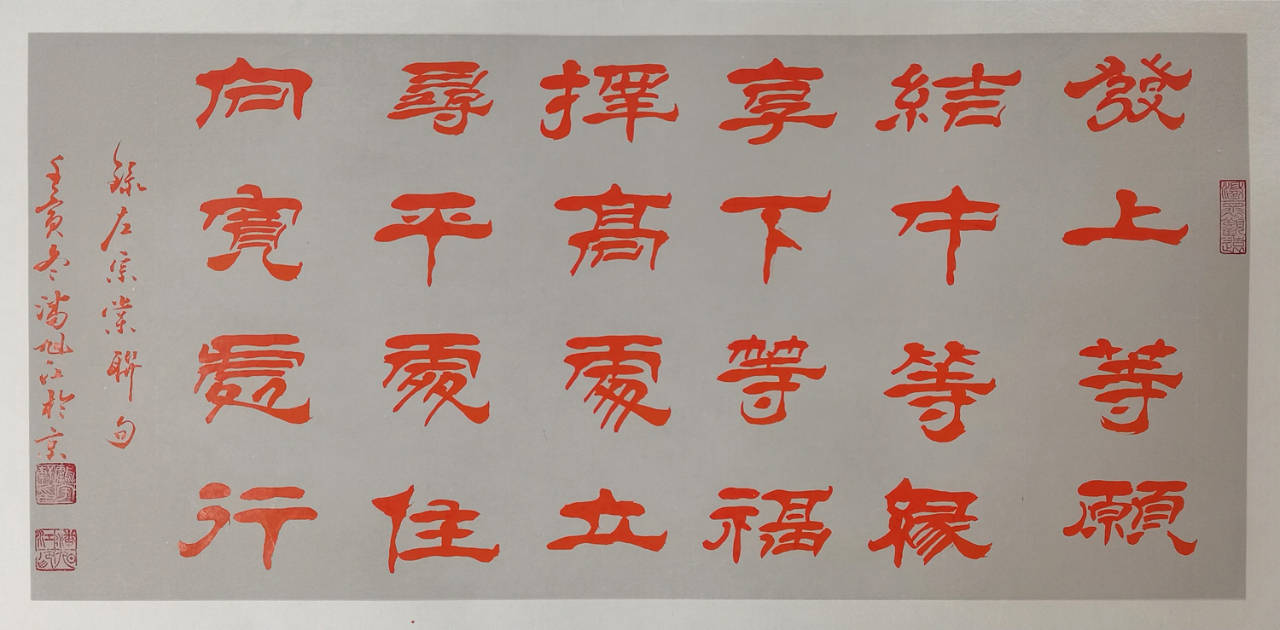 發上等願
結中等緣
享下等福
擇高處立
尋平處住
向寬處行
錄左宗棠聯句
壬寅冬潘旭江於京